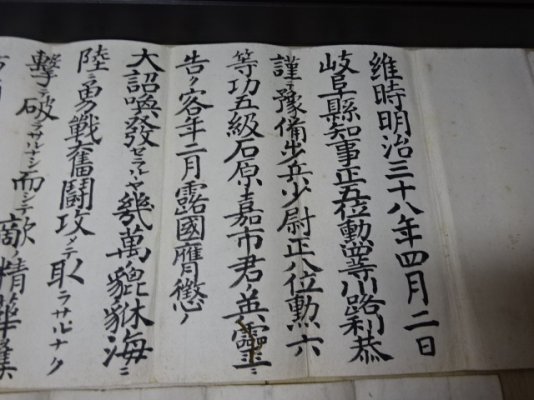 維時明治三十八年四月二日
岐阜縣知事正五位勲四等川路利恭
謹テ豫備歩兵少尉正八位勲六
等功五級石原小嘉市君ノ英靈ニ
告ク客年二月露國膺懲ノ
大詔喚發セラルヽヤ幾萬ノ貔貅海ニ
陸ニ勇戰奮鬪攻メテ取ラサルナク
撃テ破ラサルナシ而シテ敵ノ精華